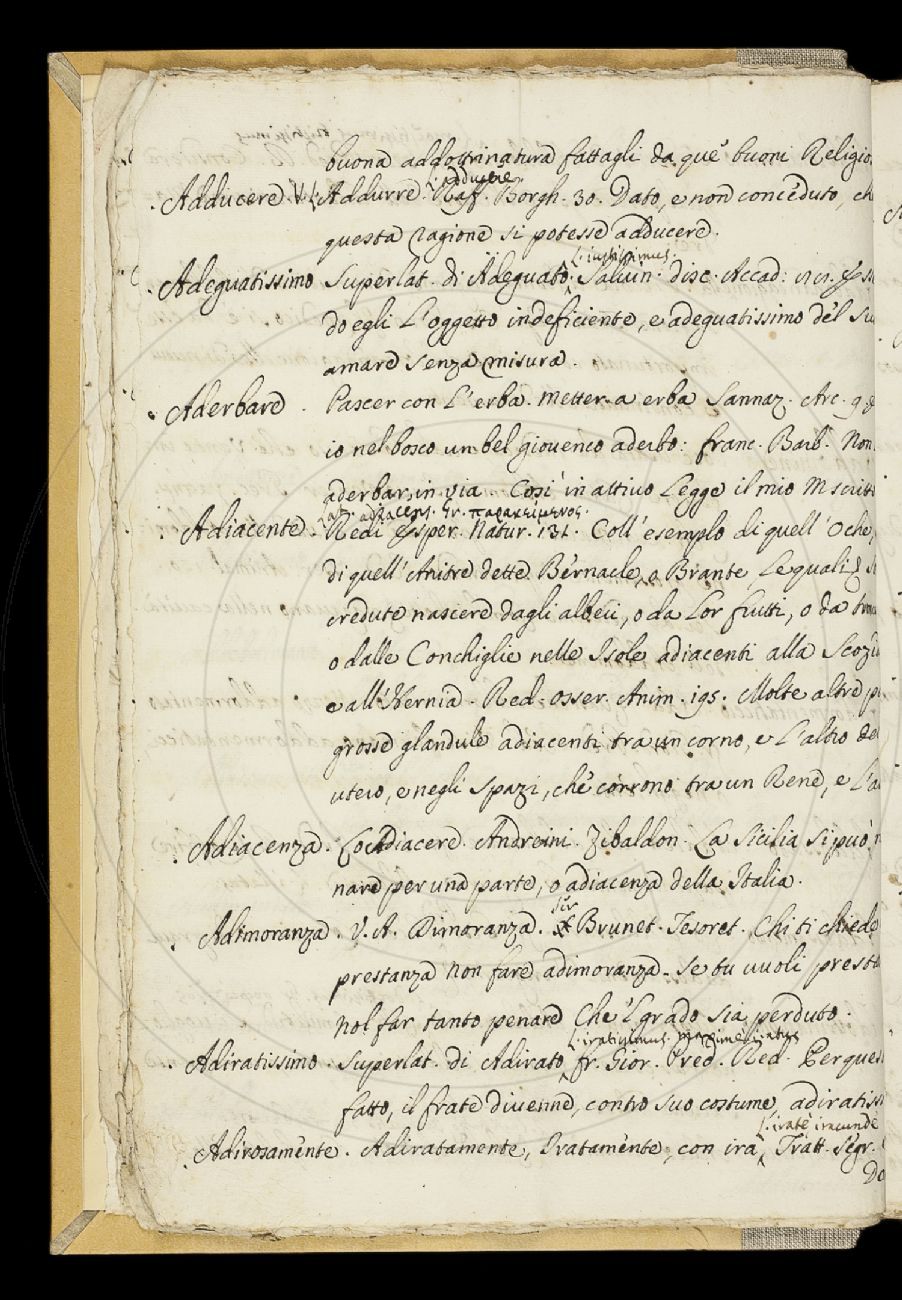 buona addottrinatura fattagli da que' buoni Religio
adducere
Adducere. V. L. Addurre. Raff. Borgh. 30. Dato, e non concéduto, ch
questa ragione si potesse adducere.
L. iustissimus.
Adeguatissimo Superlat. di Adeguato. Salvin. disc. Accad:
do egli L'oggetto indeficiente, e adeguatissimo del Su
amare senza misura.
Aderbare. Pascer con L'erba. Metter a erba Sannaz. Arc. 9.
io nel bosco un bel giovenco aderbo: franc. Barb. Non
aderbar, in via. Cosi' in attivo Legge il mio M scritt
Lat. adiacens. Gr. παρακείμενος.
Adiacente. Redi Esper. Natur. 131. Coll' esemplo di quell' Oche,
di quell' Anitre dette Bernacle, o Brante Le quali
credute nascere dagli alberi, o da Lor frutti, o da
o dalle Conchiglie nelle Isole adiacenti alla Scozi
e all' Ibernia. Red. osser. Anim. 195. Molte altre
grosse glandule adiacenti tra un corno, e L'altro de
utero, e negli Spazi, che corrono tra un Rene, e L'a
Adiacenza. Andreini. Zibaldon. La Sicilia si può n
nare per una parte, o adiacenza della Italia.
Adimoranza. V. A. Dimoranza. Ser Brunet. Tesoret. Chi ti chiede
prestanza non fare adimoranza. Se tu vuoli prest
nol far tanto penare Che'l grado sia perduto.
L. iratissimus. maxime iratus
Adiratissimo. Superlat. di Adirato, fr. Gior. Pred. Red. Per
fatto, il frate divenne, contro suo costume, adiratiss
L. irate iracunde
Adirosamente. Adiratamente, Iratamente, con ira, Tratt. Segr.